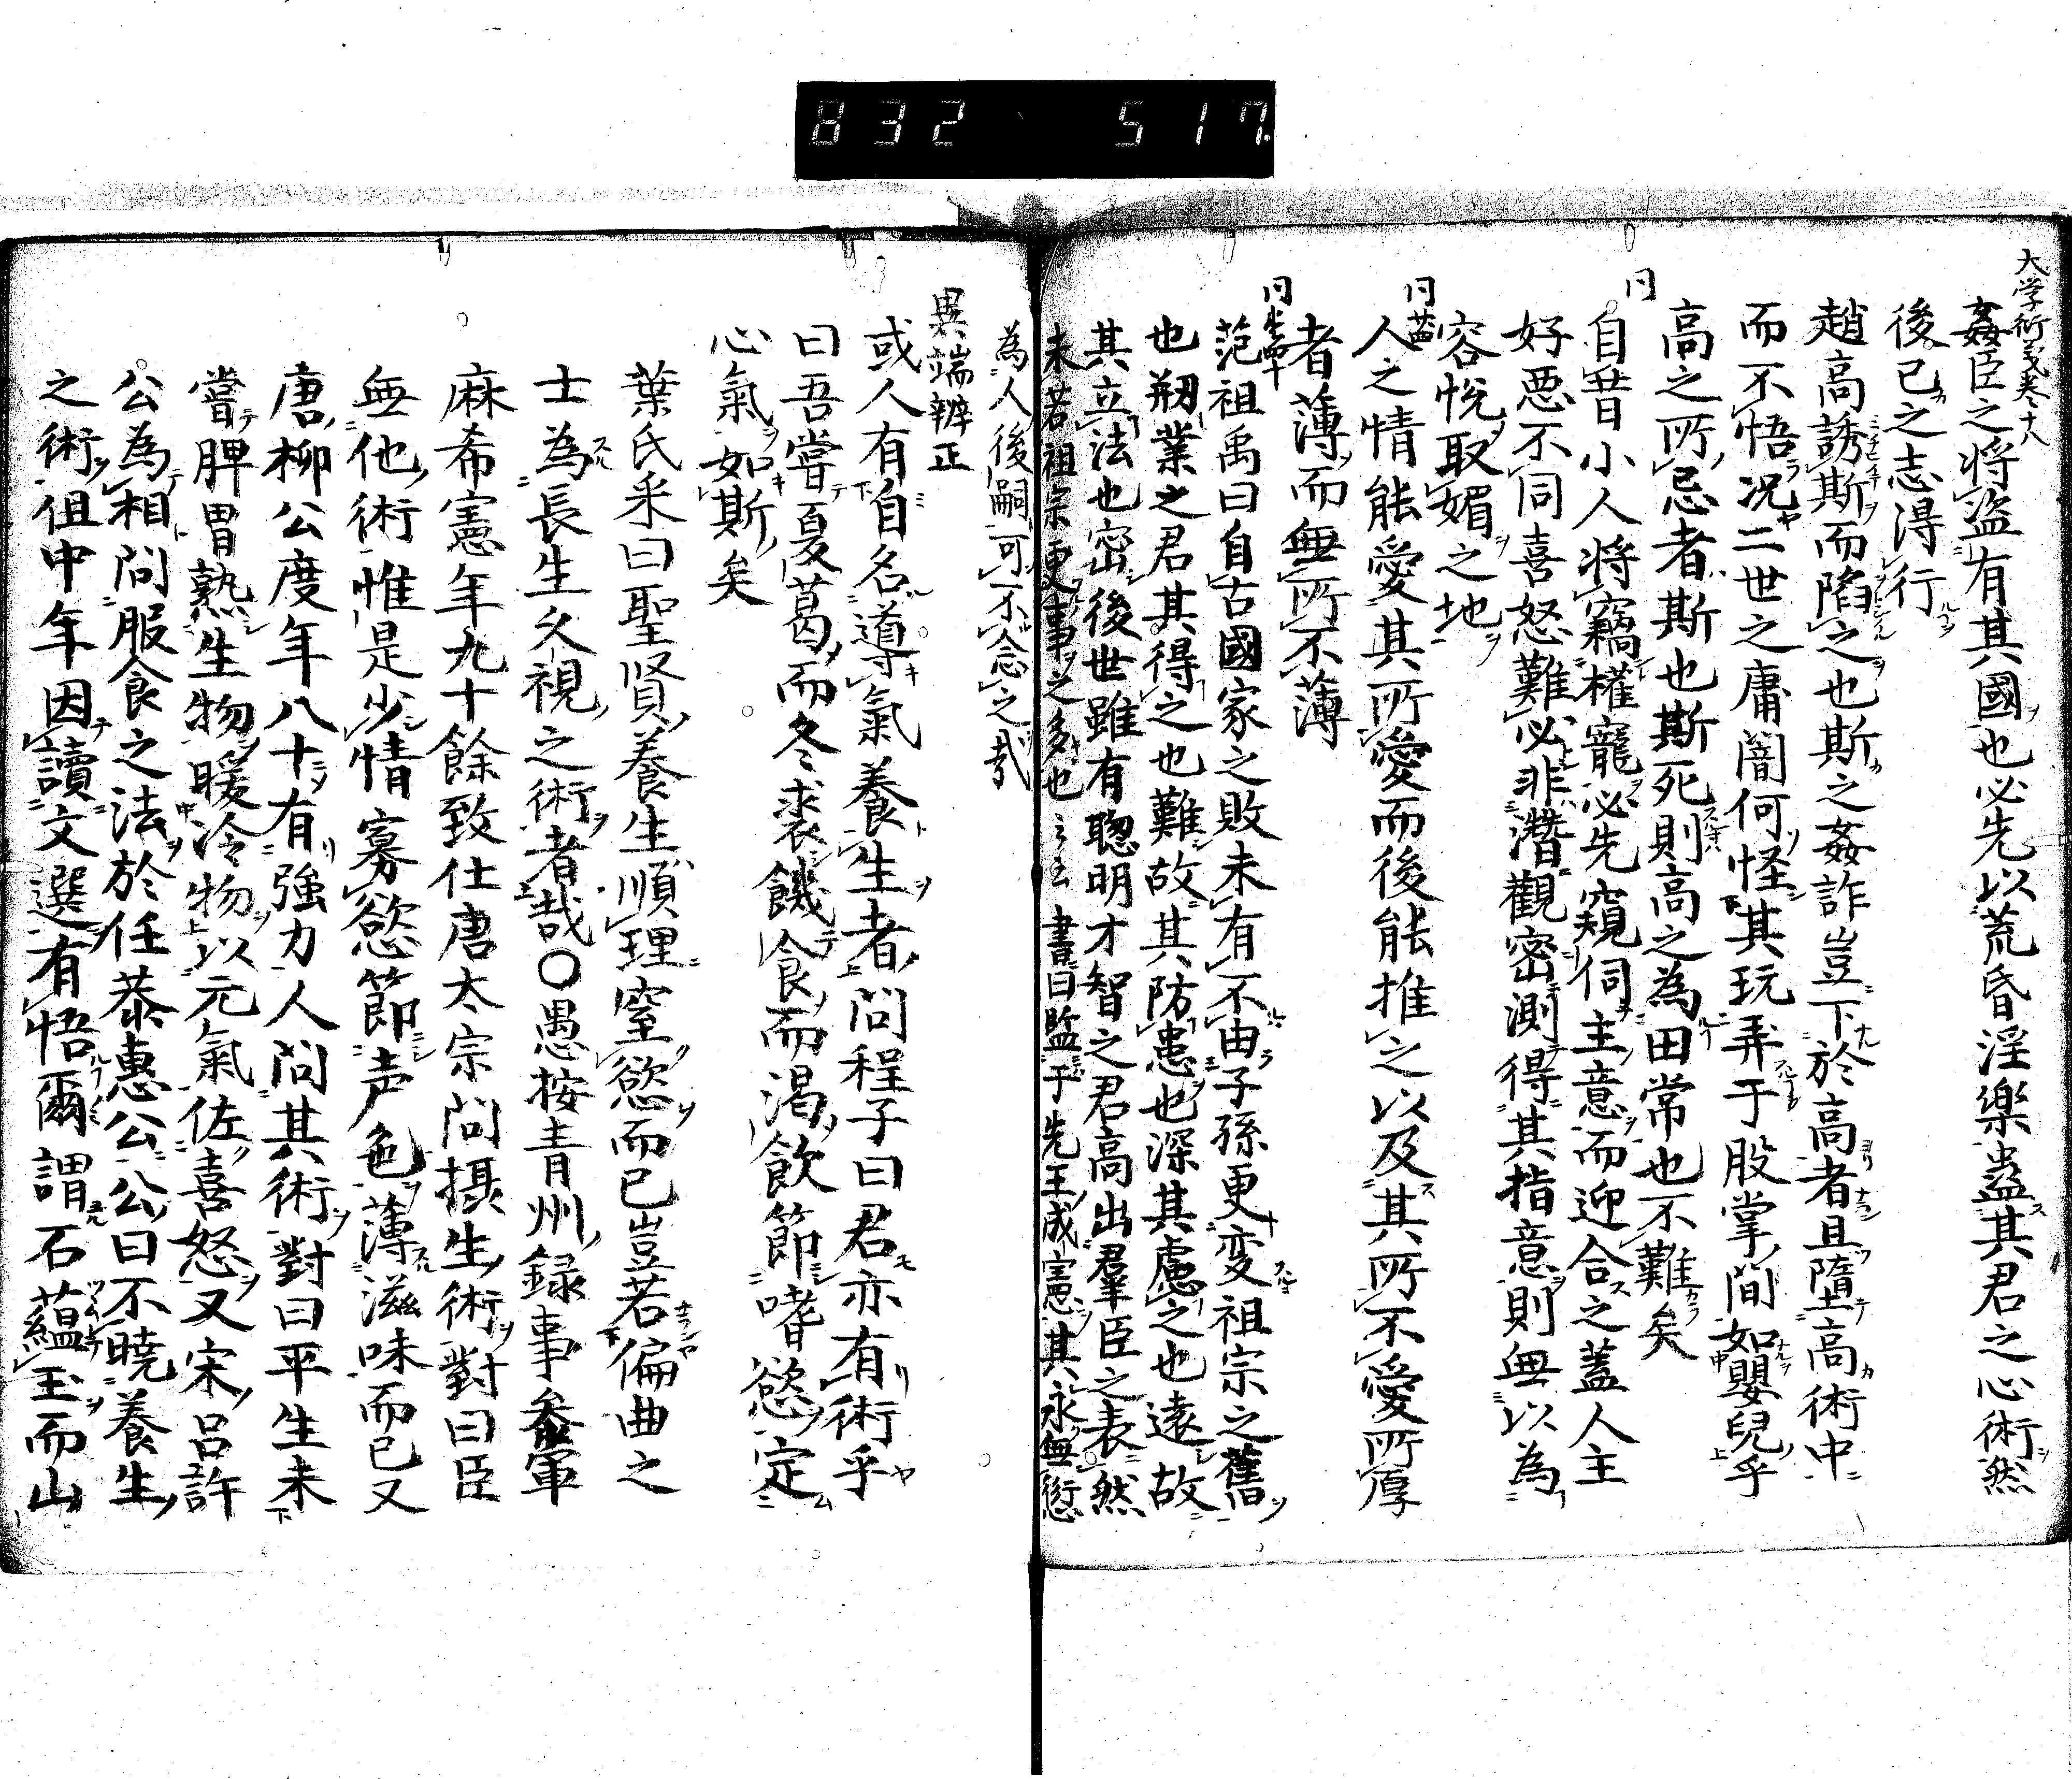 832 517
大学衍義巻十八
姦臣之将盗有其國也必先以荒昏淫樂蠱其君之心術然
後已之志得行
趙高誘斯而陷之也斯之姦詐豈下於高者且墮高術中
而不悟況二世之庸闇何怪其玩弄于股掌間如嬰兒乎
高之所忌者斯也斯死則高之為田常也不難矣
同
自昔小人将竊權寵必先窺伺主意而迎合之蓋人主
好悪不同喜怒難必非潛觀密測得其指意則無以為
容悦取媚之地
同
人之情能愛其所愛而後能推之以及其所不愛所厚
者薄而無所不薄
同
范祖禹曰自古國家之敗未有不由子孫更変祖宗之舊
也剏業之君其得之也難故其防患也深其慮之也遠故
其立法也密後世雖有聰明才智之君高出羣臣之表然
未若祖宗更事之多也 書曰監于先王成憲其永無愆
為人後嗣可不念之哉
異端辨正
或人有自名導氣養生者問程子曰君亦有術乎
曰吾嘗夏葛而冬裘饑食而渇飲節嗜慾定
心氣如斯矣
葉氏采曰聖賢養生順理窒慾而已豈若偏曲之
士為長生久視之術者哉〇愚按青州録事参軍
麻希憲年九十餘致仕唐太宗問摂生術對曰臣
無他術惟是少情寡慾節声色薄滋味而已又
唐柳公度年八十有強力人問其術對曰平生未
嘗脾胃熟生物暖冷物以元氣佐喜怒又宋呂許
公為相問服食之法於任恭惠公公曰不暁養生
之術但中年因讀文選有悟爾謂石蘊玉而山